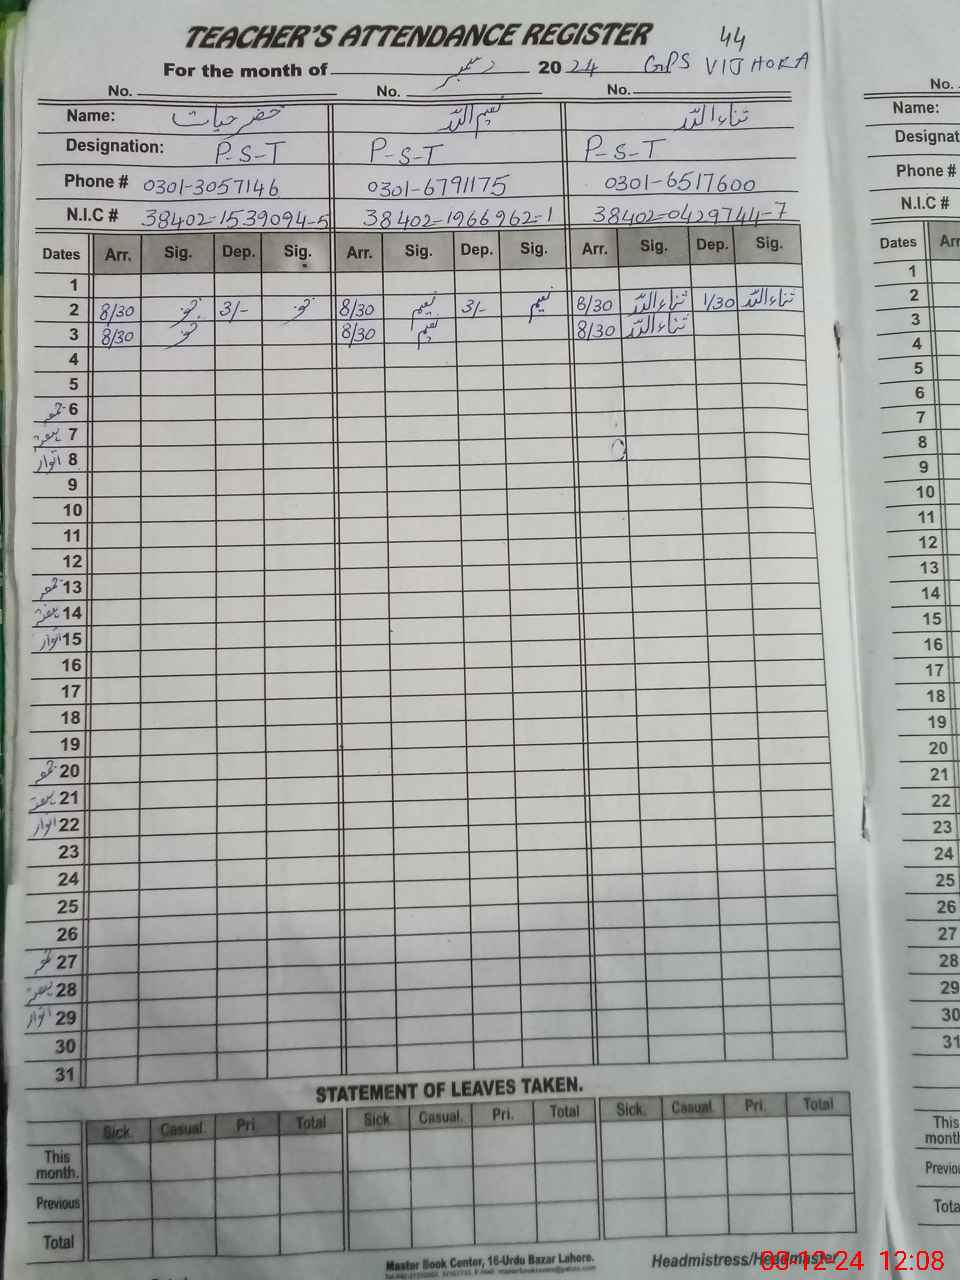 TEACHER'S ATTENDANCE REGISTER 44
For the month of دسمبر 2024 GPS VIJHOKA
No. No. No. No.
Name: خضر حیات نعیم اللہ ثناء اللہ Name:
Designation: P-S-T P-S-T P-S-T Designat
Phone # 0301-3057146 0301-6791175 0301-6517600 Phone #
N.I.C # 38402-1539094-5 38402-1966962-1 38402-0429744-7 N.I.C #
Dates Arr. Sig. Dep. Sig. Arr. Sig. Dep. Sig. Arr. Sig. Dep. Sig. Dates Arr
1 1
2 8/30 3/- 8/30 نعیم 3/- نعیم 8/30 ثناء اللہ 1/30 ثناء اللہ 2
3 8/30 8/30 نعیم 8/30 ثناء اللہ 3
4 4
5 5
جمعہ 6 6
ہفتہ 7 7
اتوار 8 8
9 9
10 10
11 11
12 12
جمعہ 13 13
ہفتہ 14 14
اتوار 15 15
16 16
17 17
18 18
19 19
جمعہ 20 20
ہفتہ 21 21
اتوار 22 22
23 23
24 24
25 25
26 26
جمعہ 27 27
ہفتہ 28 28
اتوار 29 29
30 30
31 31
STATEMENT OF LEAVES TAKEN.
Sick. Casual. Pri. Total Sick. Casual. Pri. Total Sick. Casual. Pri. Total
This month. This month
Previous Previo
Total Tota
Master Book Center, 16-Urdu Bazar Lahore. Headmistress/Headmaster
03-12-24 12:08